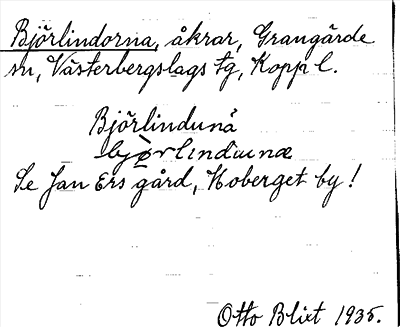 Björlindorna, åkrar, Grangärde
sn, Västerbergslags tg, Kopp l.
Björlindunå
bjørlindunæ
Se Jan Ers gård, Hoberget by!
Otto Blixt 1935.